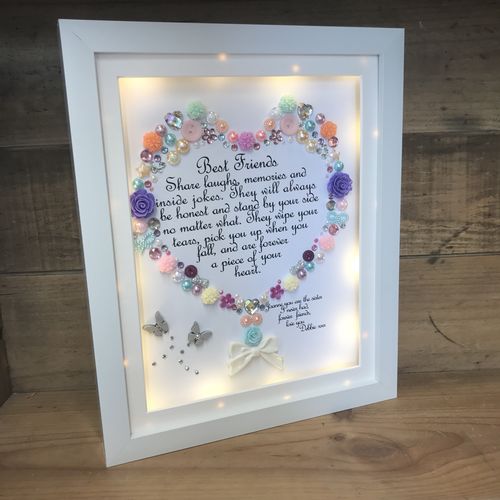 Best Friends
Share laughs, memories and
inside jokes. They will always
be honest and stand by your side
no matter what. They wipe your
tears, pick you up when you
fall, and are forever
a piece of your
heart.
Joanne you are the sister
I never had,
forever friends,
love you
Debbie xxx